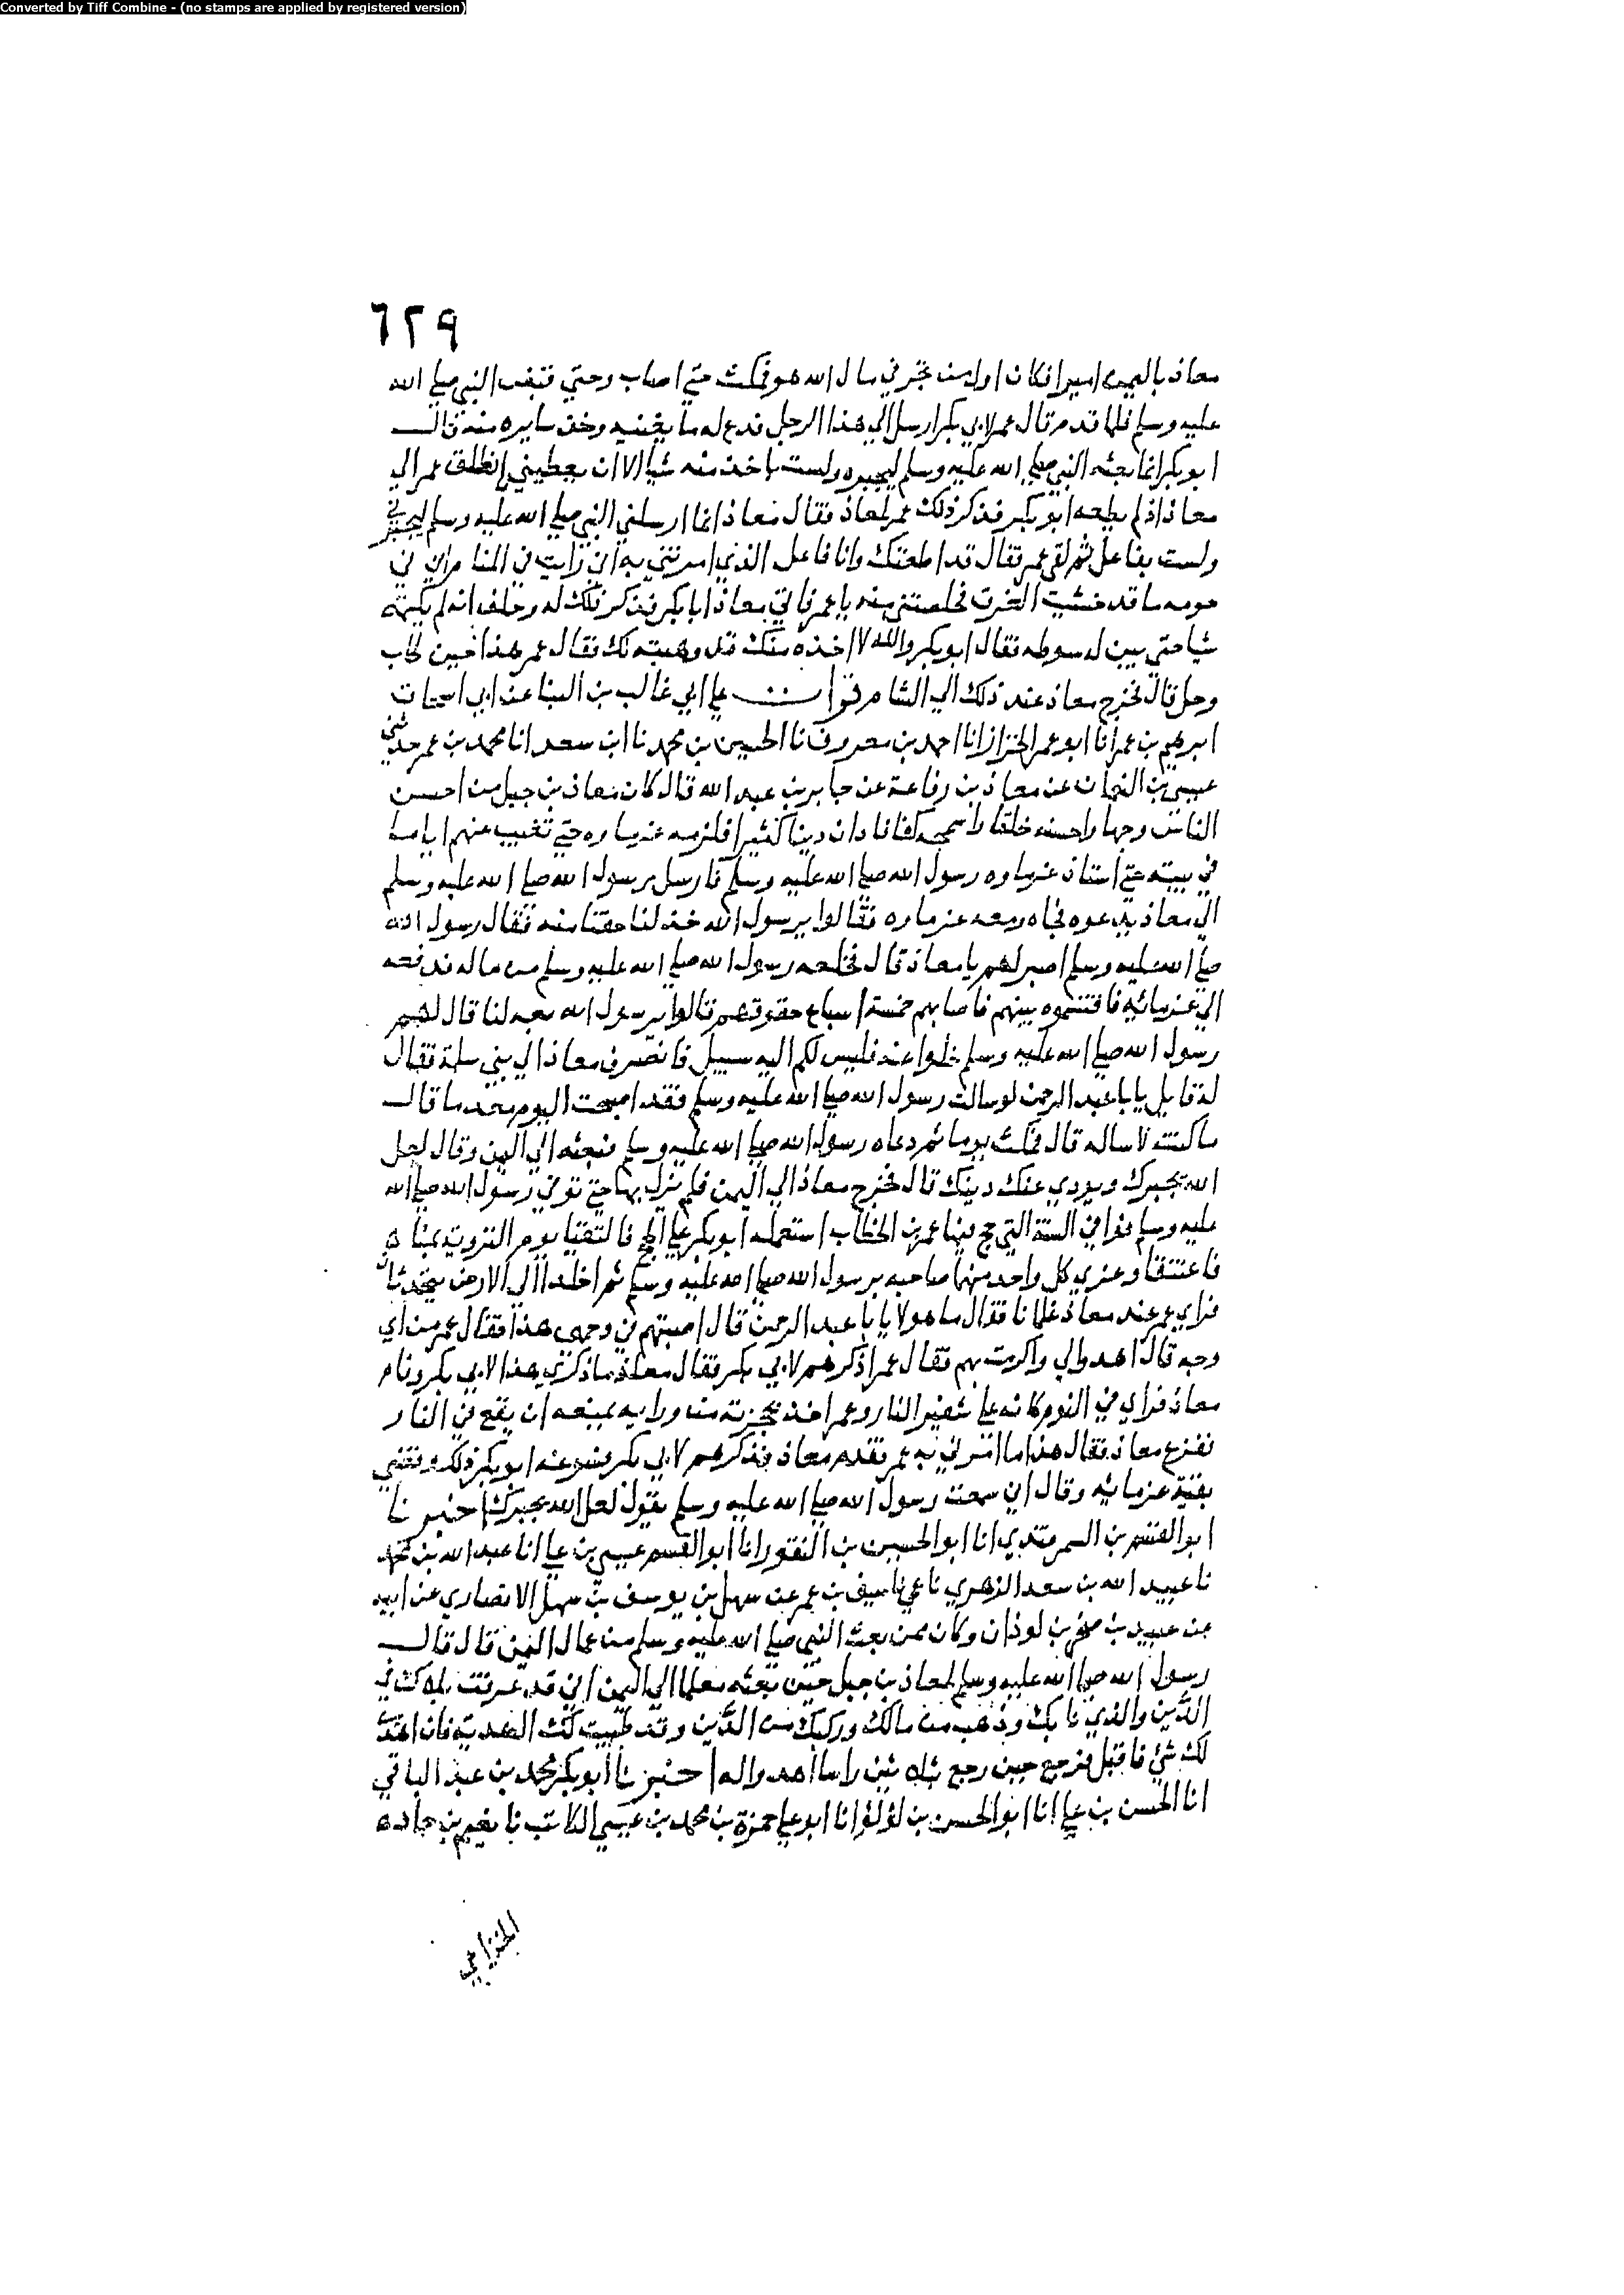 Converted by Tiff Combine - (no stamps are applied by registered version)
٦٢٩
معاذ باليمن اميرا فكان اول من تجر في مال الله هو فمكث حتي اصاب وحتي قبض النبي صلي الله
عليه وسلم فلما قدم قال عمر لابي بكر ارسل الي هذا الرجل فدع له ما يعيشه وخذ سايره منه قال
ابو بكر انما بعثه النبي صلي الله عليه وسلم ليجبره ولست باخذ منه شيا الا ان يعطيني انطلق عمر الي
معاذ اذ لم يطعه ابو بكر فذكر ذلك عمر لمعاذ فقال معاذ انما ارسلني النبي صلي الله عليه وسلم ليجبرني
ولست بفاعل ثم لقي عمر فقال قد اطعتك وانا فاعل الذي امرتني به اني رايت في المنام اني في
حومه ما قد خشيت الغرق فخلصتني منه يا عمر فاتي معاذ ابا بكر فذكر ذلك له وحلف انه لم يكتمه
شيا حتي بين له سوطه فقال ابو بكر والله لا اخذه منك قد وهبته لك فقال عمر هذا حين طاب
وحل قال فخرج معاذ عند ذلك الي الشام قرات علي ابي غالب بن البنا عن ابي اسحاق
ابرهيم بن عمر انا ابو عمر الخزاز انا احمد بن معروف نا الحسين بن محمد نا ابن سعد انا محمد بن عمر حدثني
عيسي بن النعمان عن معاذ بن رفاعة عن جابر بن عبد الله قال كان معاذ بن جبل من احسن
الناس وجها واحسنه خلقا واسمحه كفا فادان دينا كثيرا فلزمه غرماوه حتي تغيب عنهم اياما
في بيته حتي استادي غرماوه رسول الله صلي الله عليه وسلم فارسل رسول الله صلي الله عليه وسلم
الي معاذ يدعوه فجاه ومعه غرماوه فقالوا يرسول الله خذ لنا حقنا منه فقال رسول الله
صلي الله عليه وسلم اصبر لهم يا معاذ قال فخلعه رسول الله صلي الله عليه وسلم من ماله فدفعه
الي غرمائه فاقتسموه بينهم فاصابهم خمسة اسباع حقوقهم قالوا يرسول الله بعه لنا قال لهم
رسول الله صلي الله عليه وسلم خلوا عنه فليس لكم اليه سبيل فانصرف معاذ الي بني سلمة فقال
له قايل يابا عبد الرحمن لو سالت رسول الله صلي الله عليه وسلم فقد اصبحت اليوم معدما قال
ما كنت لاساله قال فمكث يوما ثم دعاه رسول الله صلي الله عليه وسلم فبعثه الي اليمن وقال لعل
الله يجبرك ويودي عنك دينك قال فخرج معاذ الي اليمن فلم يزل بها حتي توفي رسول الله صلي الله
عليه وسلم فوافي السنة التي حج فيها عمر بن الخطاب استعمله ابو بكر علي الحج فالتقيا يوم التروية بمنا
فاعتنقا وعزي كل واحد منهما صاحبه برسول الله صلي الله عليه وسلم ثم اخلدا الي الارض يتحدثان
فراي عمر عند معاذ غلمانا فقال ما هولا يابا عبد الرحمن قال اصبتهم في وجهي هذا فقال عمر من اي
وجه قال اهدوا لي واكرمت بهم فقال عمر اذكرهم لابي بكر فقال معاذ ما ذكري هذا لابي بكر ونام
معاذ فراي في النوم كانه علي شفير النار وعمر اخذ بحجزته من ورايه يمنعه ان يقع في النار
ففزع معاذ فقال هذا ما امرني به عمر فقدم معاذ فذكرهم لابي بكر فسوغه ابو بكر ذلك وقضي
بقية غرمائه وقال اني سمعت رسول الله صلي الله عليه وسلم يقول لعل الله يجبرك اخبرنا
ابو القسم بن السمرقندي انا ابو الحسين بن النقور انا ابو القسم عيسي بن علي انا عبد الله بن محمد
نا عبيد الله بن سعد الزهري نا عمي نا سيف بن عمر عن سهل بن يوسف بن سهل الانصاري عن ابيه
عن عبيد بن صخر بن لوذان وكان ممن بعث النبي صلي الله عليه وسلم من عمال اليمن قال قال
رسول الله صلي الله عليه وسلم لمعاذ بن جبل حين بعثه معلما الي اليمن اني قد عرفت بلاك في
الدين والذي نابك وذهب من مالك وركبك من الدين وقد طيبت لك الهدية فان اهدي
لك شئ فاقبل فرجع حين رجع بثلاثين راسا اهدوا له اخبرنا ابو بكر محمد بن عبد الباقي
انا الحسن بن علي انا ابو الحسن بن لؤلؤ انا ابو علي حمزة بن محمد بن عيسي الكاتب نا نعيم بن حماد نا